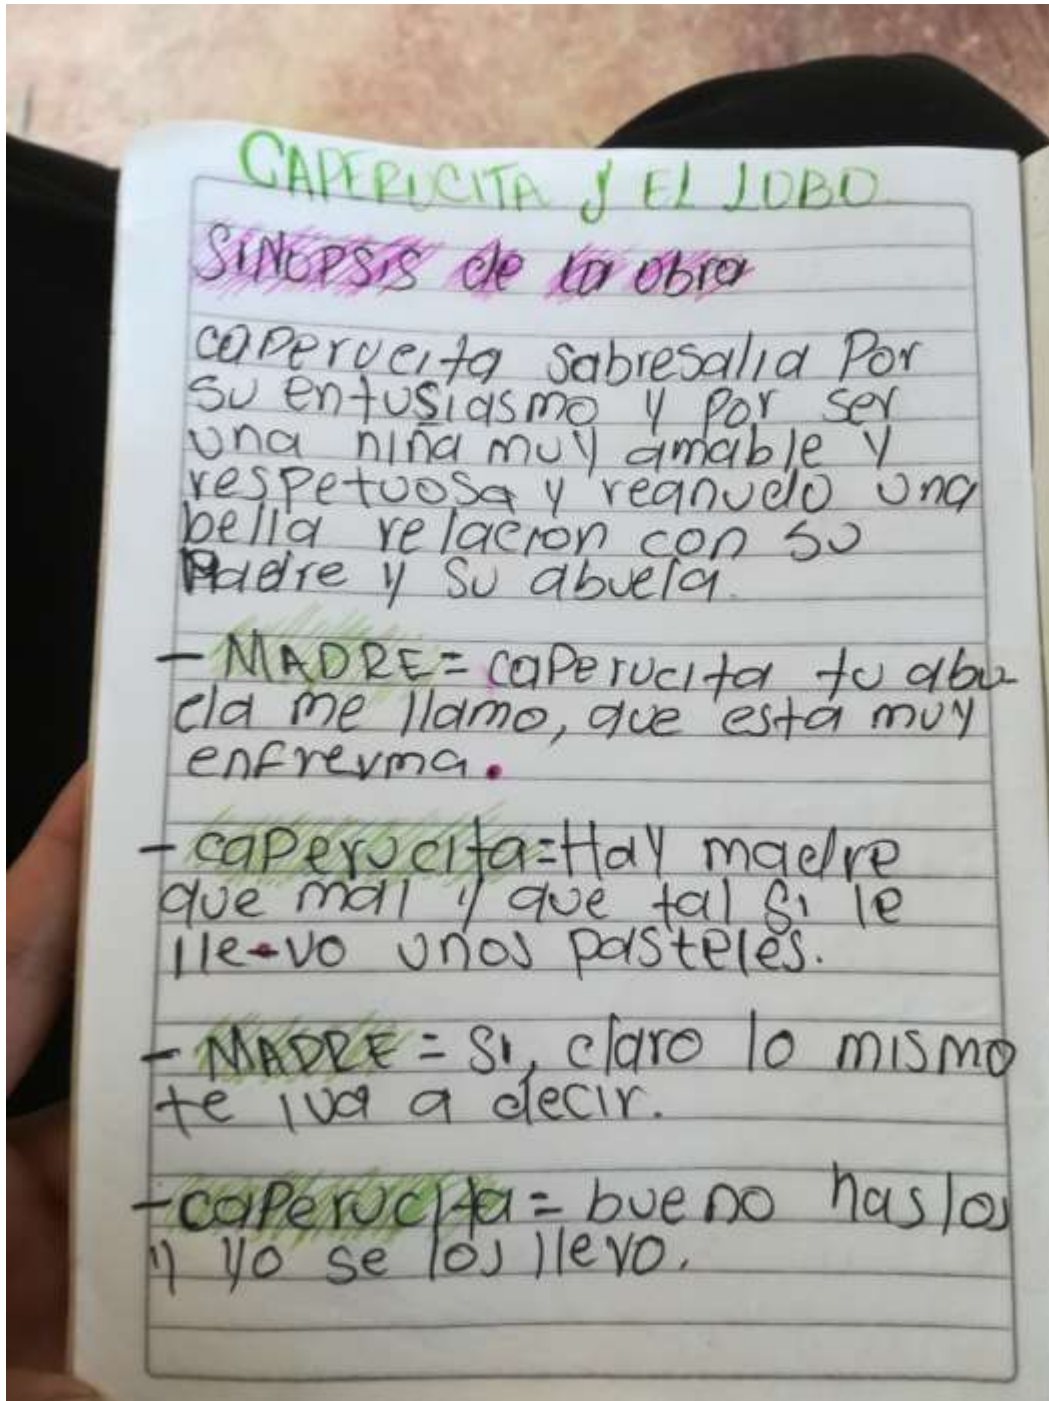 CAPERUCITA Y EL LOBO
SINOPSIS de la obra
caperucita sabresalia Por
su entusiasmo y por ser
una niña muy amable y
respetuosa y reanudo una
bella relacion con su
Madre y su abuela.
- MADRE= caperucita tu abu
ela me llamo, que esta muy
enfrerma.
- caperucita=Hay madre
que mal y que tal si le
lle-vo unos pasteles.
- MADRE = Si, claro lo mismo
te iva a decir.
- caperucita= bueno haslos
y yo se los llevo.